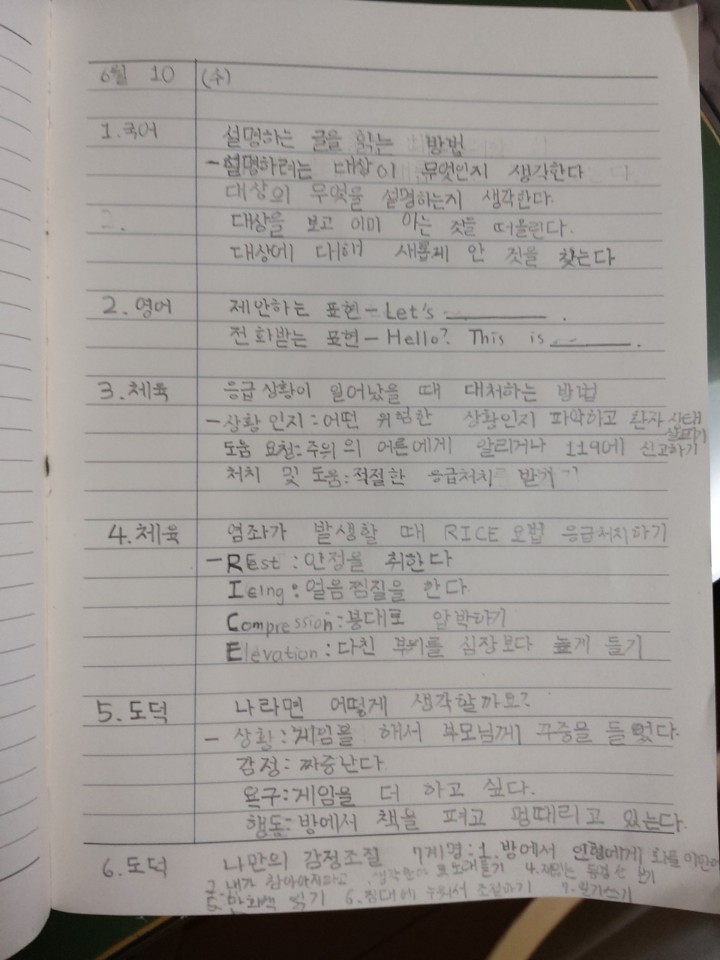 6월 10 (수)
1. 국어 설명하는 글을 읽는 방법
- 설명하려는 대상이 무엇인지 생각한다
대상의 무엇을 설명하는지 생각한다.
2. 대상을 보고 이미 아는 것을 떠올린다.
대상에 대해 새롭게 안 것을 찾는다
2. 영어 제안하는 표현 - Let's ________ .
전화받는 표현 - Hello? This is ________.
3. 체육 응급상황이 일어났을 때 대처하는 방법
- 상황 인지 : 어떤 위험한 상황인지 파악하고 환자 상태 살피기
도움 요청 : 주위의 어른에게 알리거나 119에 신고하기
처치 및 도움 : 적절한 응급처치 받기
4. 체육 염좌가 발생할 때 RICE 요법 응급처치하기
- REst : 안정을 취한다
Icing : 얼음찜질을 한다.
Compression : 붕대로 압박하기
Elevation : 다친 부위를 심장보다 높게 들기
5. 도덕 나라면 어떻게 생각할까요?
- 상황 : 게임을 해서 부모님께 꾸중을 들었다.
감정 : 짜증난다.
욕구 : 게임을 더 하고 싶다.
행동 : 방에서 책을 펴고 멍때리고 있는다.
6. 도덕 나만의 감정조절 7계명 : 1. 방에서 인형에게 화를
2. 내가 참아야지하고 생각한다 노래듣기 4. 재밌는 동영상 보기
5. 만화책 읽기 6. 침대에 누워서 조절하기 7. 일기쓰기